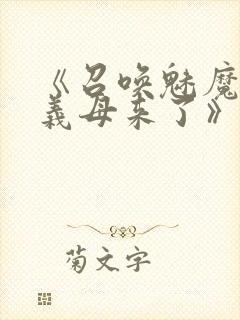 《召唤魅魔
義母来了》
菊文字